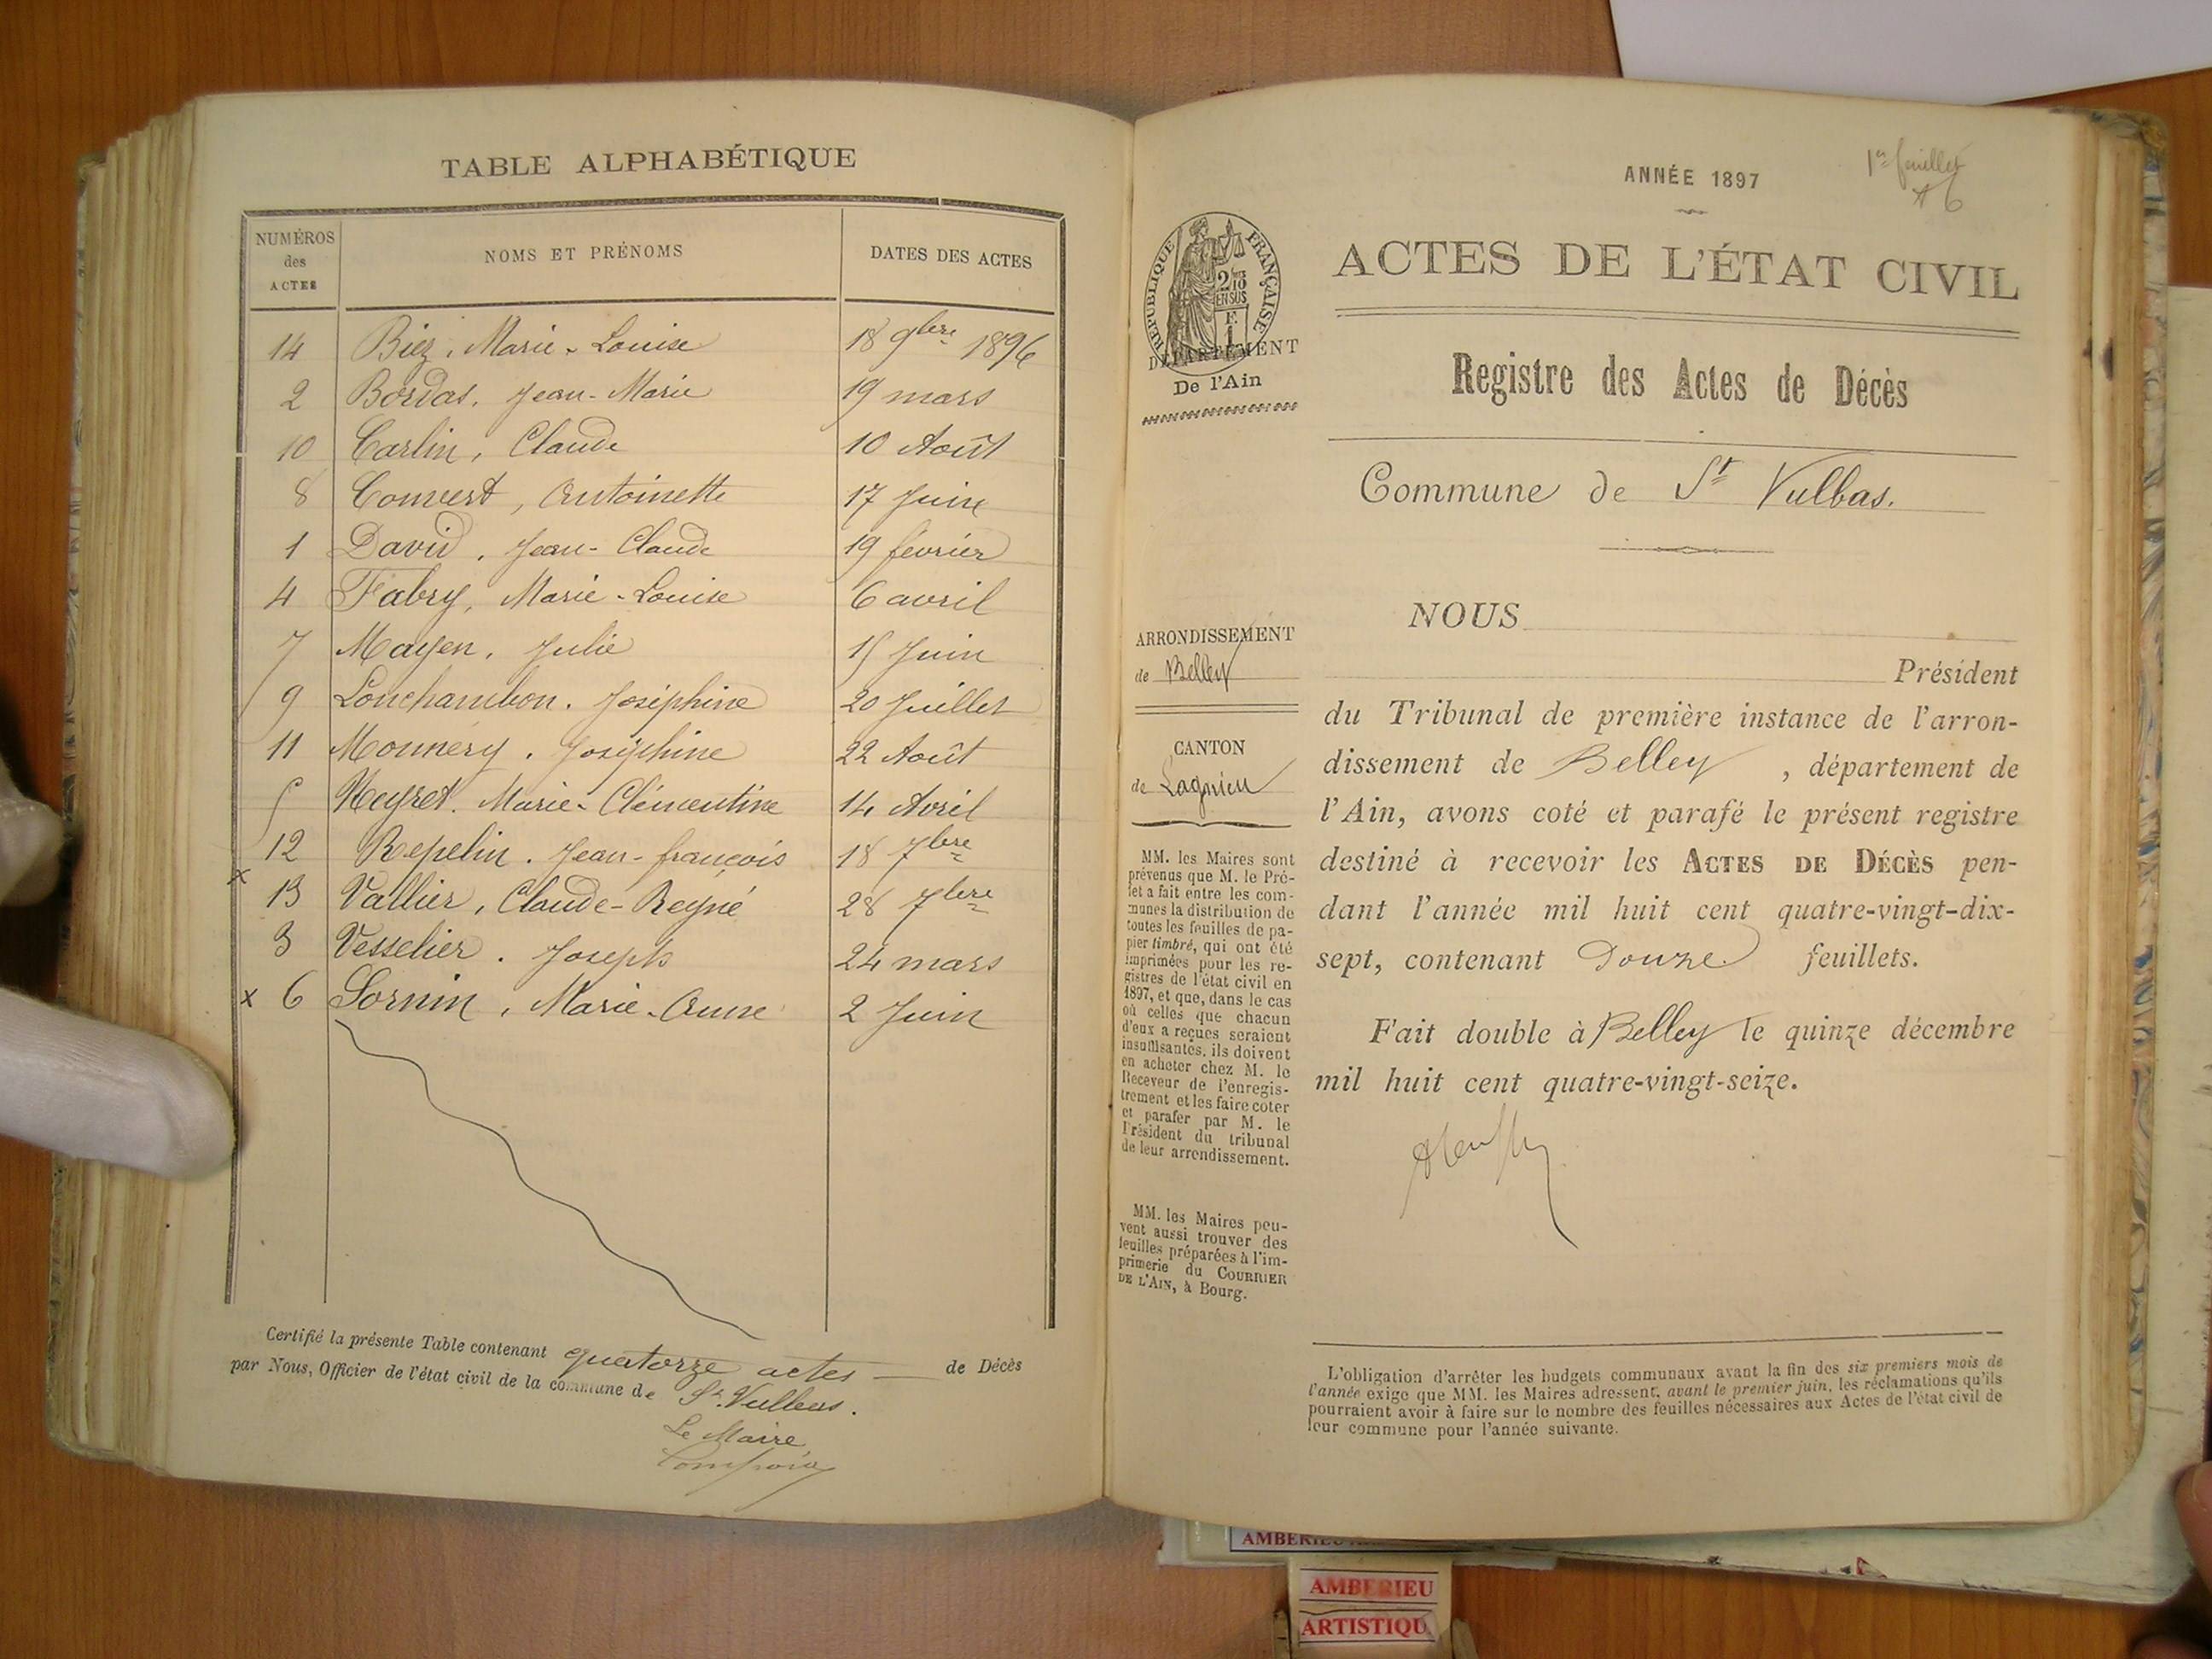 TABLE ALPHABÉTIQUE
NUMÉROS des ACTES
NOMS ET PRÉNOMS
DATES DES ACTES
14 Biez, Marie-Louise 18 9bre 1896
2 Bordas, Jean-Marie 19 mars
10 Carlin, Claude 10 Août
8 Convert, Antoinette 17 Juin
1 David, Jean-Claude 19 février
4 Fabry, Marie-Louise 6 avril
7 Mayen, Julie 15 Juin
9 Lonchambon. Joséphine 20 Juillet
11 Monnery, Joséphine 22 Août
5 Neyret. Marie-Clémentine 14 Avril
12 Repelin. Jean-françois 18 7bre
x 13 Vallier, Claude-Reyné 28 7bre
3 Vesselier. Joseph 24 mars
x 6 Sornin, Marie-Anne 2 Juin
Certifié la présente Table contenant quatorze actes de Décès
par Nous, Officier de l'état civil de la commune de St Vulbas.
Le Maire
1er feuillet
ANNÉE 1897
RÉPUBLIQUE FRANÇAISE
2/10 EN SUS
F. 1
ACTES DE L'ÉTAT CIVIL
DÉPARTEMENT
De l'Ain
Registre des Actes de Décès
Commune de St Vulbas.
ARRONDISSEMENT
de Belley
CANTON
de Lagnieu
MM. les Maires sont
prévenus que M. le Pré-
fet a fait entre les com-
munes la distribution de
toutes les feuilles de pa-
pier timbré, qui ont été
imprimées pour les re-
gistres de l'état civil en
1897, et que, dans le cas
où celles que chacun
d'eux a reçues seraient
insuffisantes, ils doivent
en acheter chez M. le
Receveur de l'enregis-
trement et les faire coter
et parafer par M. le
Président du tribunal
de leur arrondissement.
MM. les Maires peu-
vent aussi trouver des
feuilles préparées à l'im-
primerie du COURRIER
DE L'AIN, à Bourg.
NOUS
Président
du Tribunal de première instance de l'arron-
dissement de Belley, département de
l'Ain, avons coté et parafé le présent registre
destiné à recevoir les ACTES DE DÉCÈS pen-
dant l'année mil huit cent quatre-vingt-dix-
sept, contenant Douze feuillets.
Fait double à Belley le quinze décembre
mil huit cent quatre-vingt-seize.
L'obligation d'arrêter les budgets communaux avant la fin des six premiers mois de
l'année exige que MM. les Maires adressent, avant le premier juin, les réclamations qu'ils
pourraient avoir à faire sur le nombre des feuilles nécessaires aux Actes de l'état civil de
leur commune pour l'année suivante.
AMBERIEU
AMBERIEU
ARTISTIQU